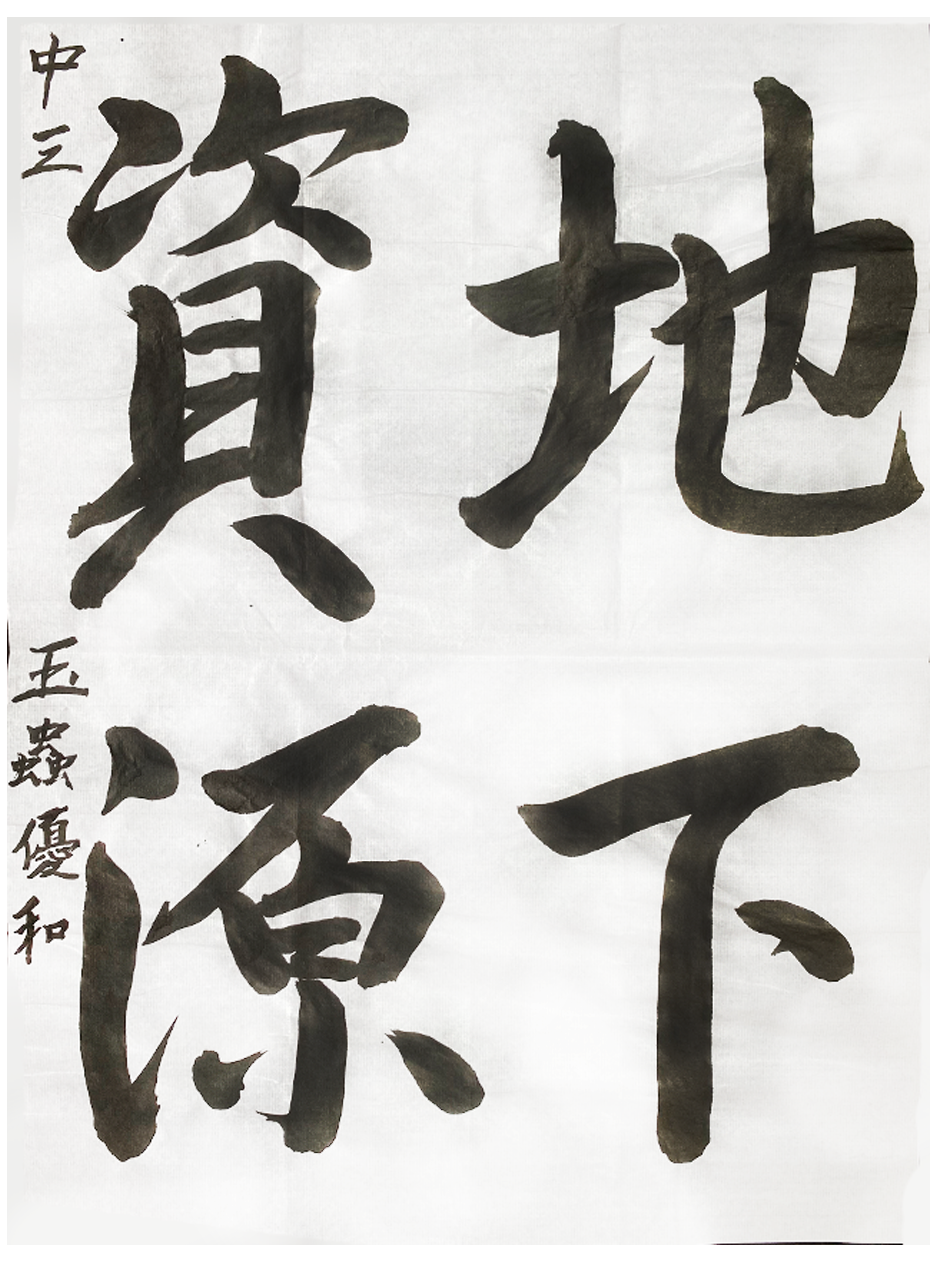 地下
資源
中三 玉蟲優和